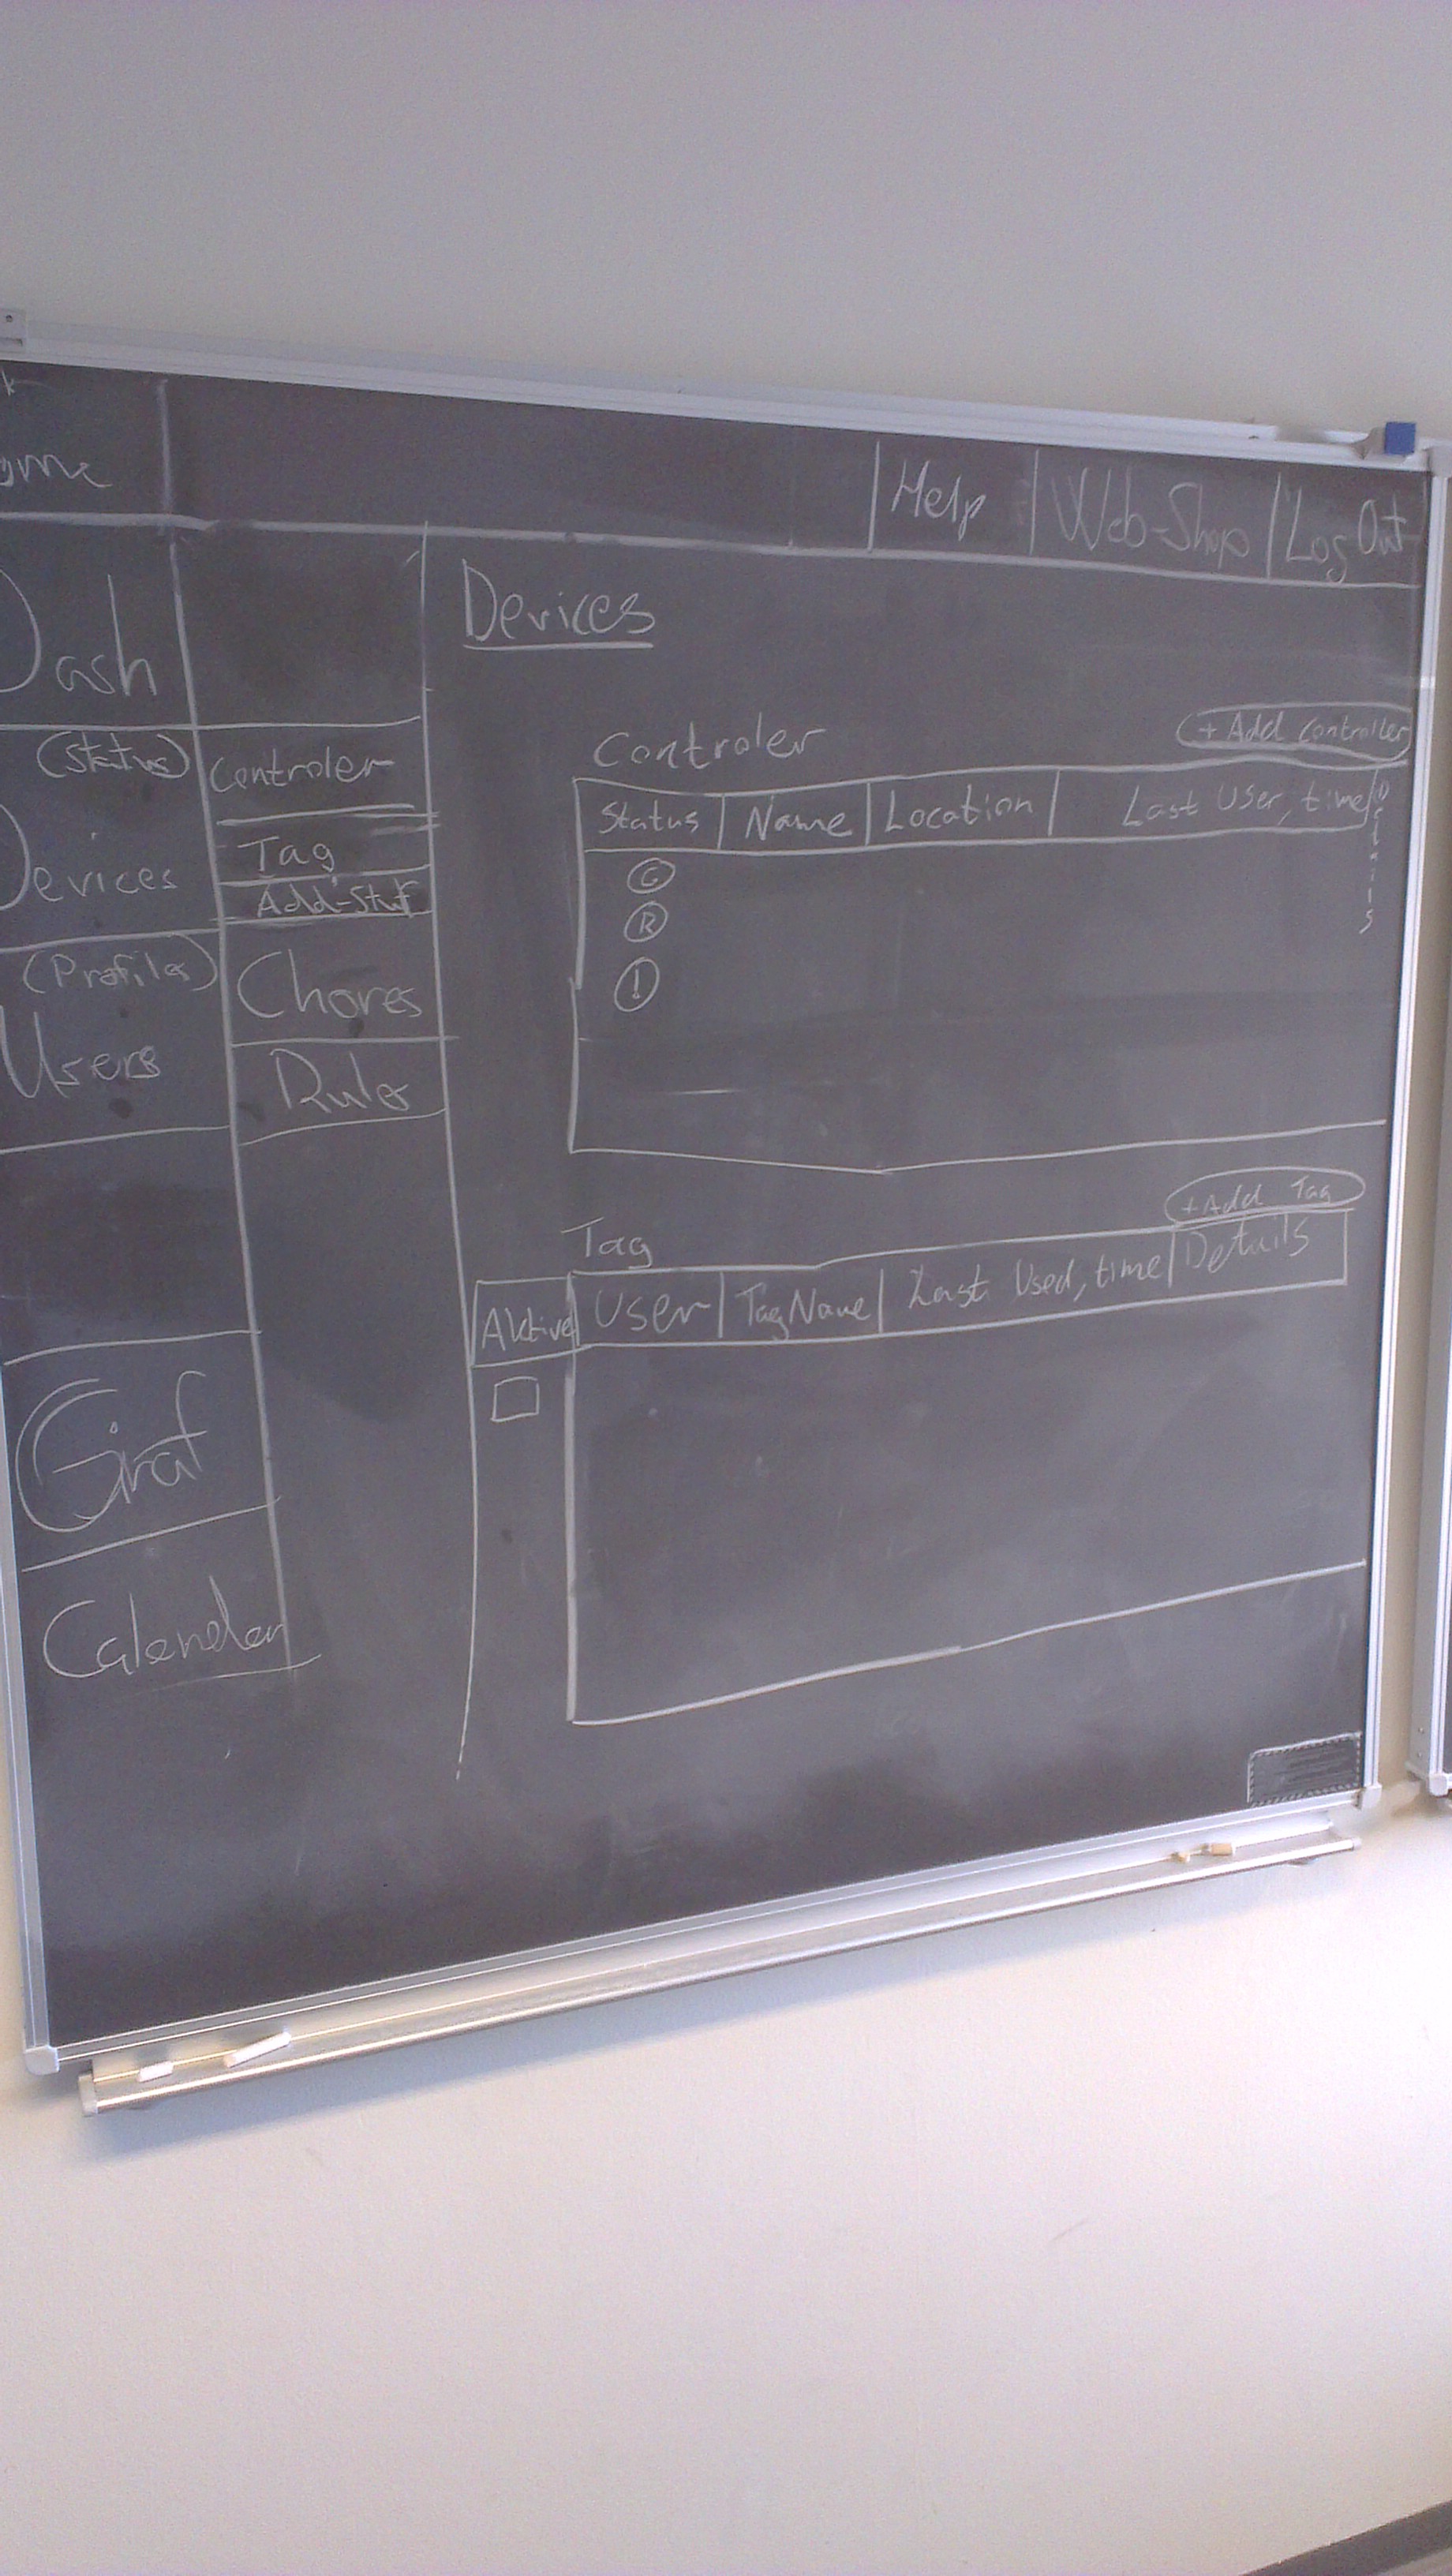 Help | Web-Shop | Log Out
Dash
(Status)
Devices
(Profiles)
Users
Giraf
Calender
Controler
Tag
Add-Stuf
Chores
Rules
Devices
Controler
+ Add controller
Status | Name | Location | Last User, time | Details
G
R
!
Tag
+ Add Tag
Aktive | User | Tag Name | Last Used, time | Details